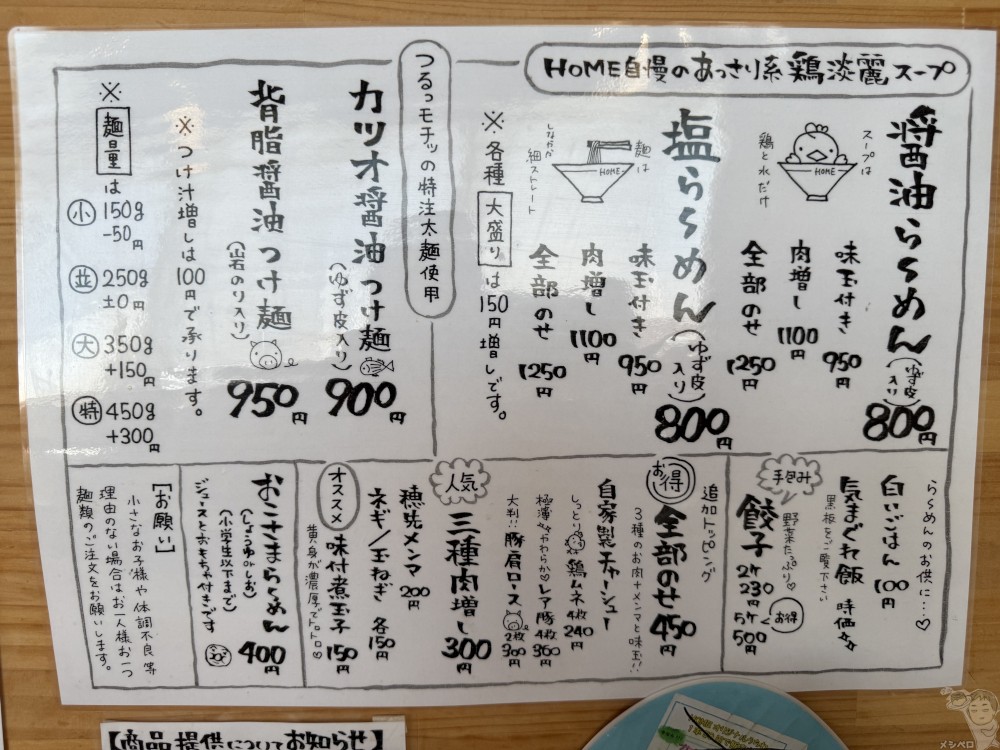 HOME自慢のあっさり系鶏淡麗スープ
醤油らーめん
(ゆず皮入り)
800円
スープは
鶏と水だけ
HOME
味玉付き 950円
肉増し 1100円
全部のせ 1250円
塩らーめん
(ゆず皮入り)
800円
麺は
しなやか
細ストレート
HOME
味玉付き 950円
肉増し 1100円
全部のせ 1250円
※各種大盛りは150円増しです。
つるっモチッの特注太麺使用
カツオ醤油つけ麺
(ゆず皮入り)
900円
背脂醤油つけ麺
(岩のり入り)
950円
※つけ汁増しは100円で承ります。
※麺量は
小 150g
-50円
並 250g
±0円
大 350g
+150円
特 450g
+300円
らーめんのお供に…♡
白いごはん 100円
気まぐれ飯 時価
黒板をご覧下さい
手包み
餃子
野菜たっぷり♡
2ケ 230円
5ケ 500円
お得
追加トッピング
お得
全部のせ 450円
3種のお肉+メンマと味玉!!
自家製チャーシュー
しっとり鶏ムネ 4枚 240円
極薄やわらか♡レア豚 4枚 360円
大判!!豚肩ロース 2枚 300円
人気
三種肉増し 300円
穂先メンマ 200円
ネギ/玉ねぎ 各150円
オススメ
味付煮玉子 150円
黄身が濃厚でトロトロ♡
おこさまらーめん 400円
(しょうゆorしお)
(小学生以下まで)
ジュースとおもちゃ付きです
[お願い]
小さなお子様や体調不良等
理由のない場合はお一人様お一つ
麺類のご注文をお願いします。
【商品提供についてお知らせ】
メシペロ